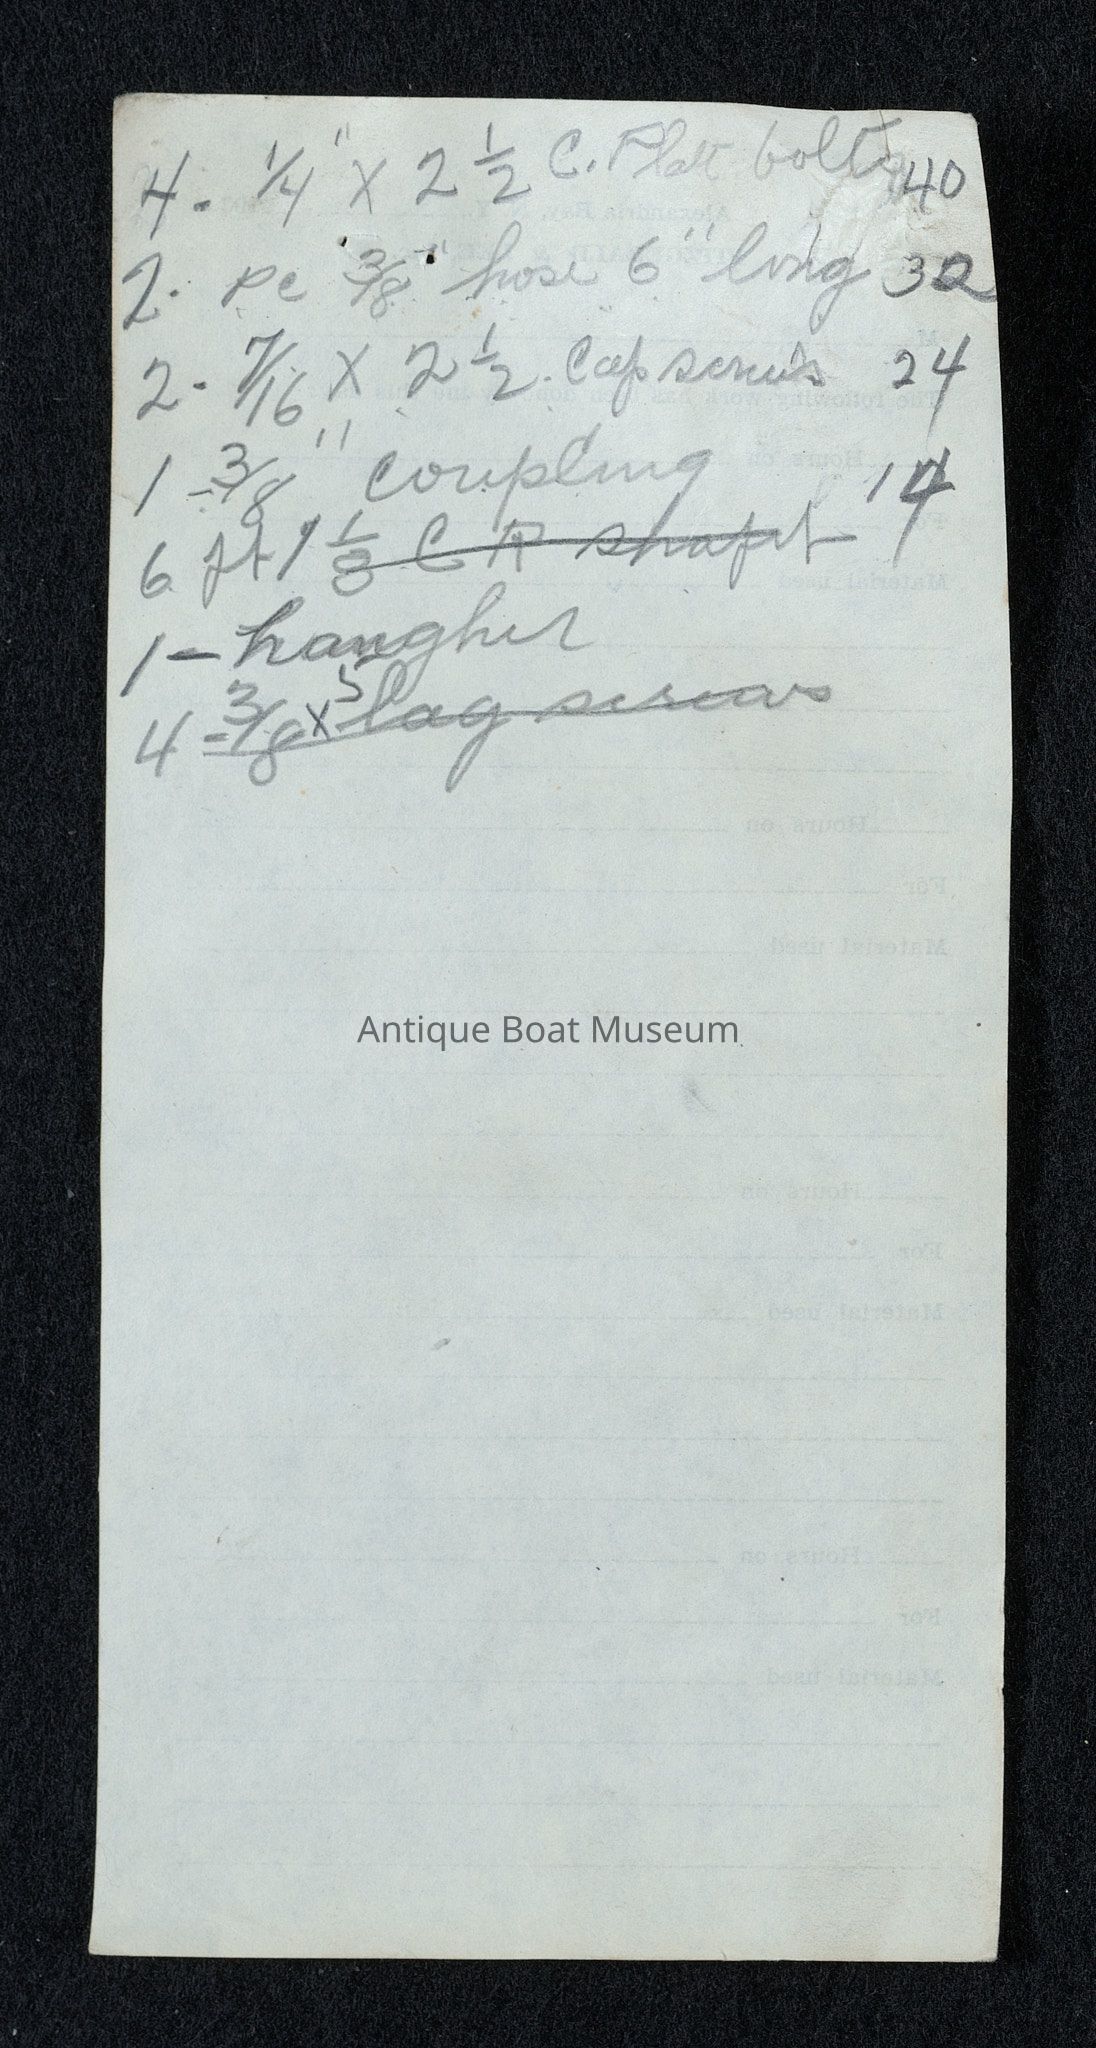 4 - 1/4" x 2 1/2 C. Plat bolts 40
2. pc 3/8" hose 6" long 32
2 - 7/16 x 2 1/2. Cap screws 24
1 - 3/8" coupling 14
6 ft 1 1/8 C R shaft
1 - hangher
4 - 3/8 x 5 lag screws
Antique Boat Museum